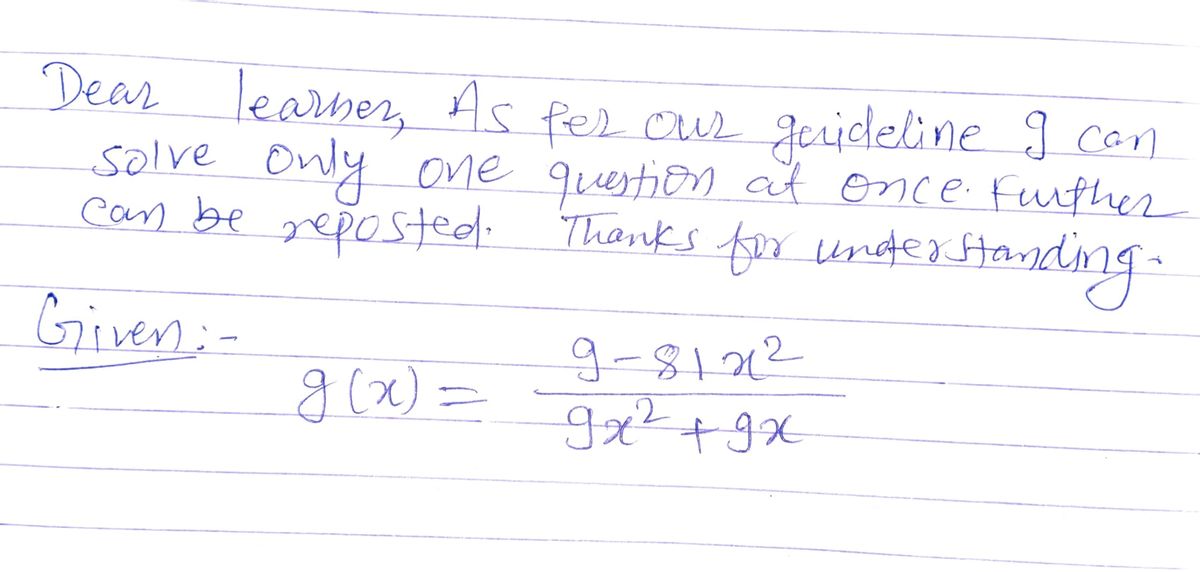 Dear learner, As per our guideline I can
solve only one question at once. Further
can be reposted. Thanks for understanding.
Given:-
g(x) = \frac{9-81x^2}{9x^2+9x}